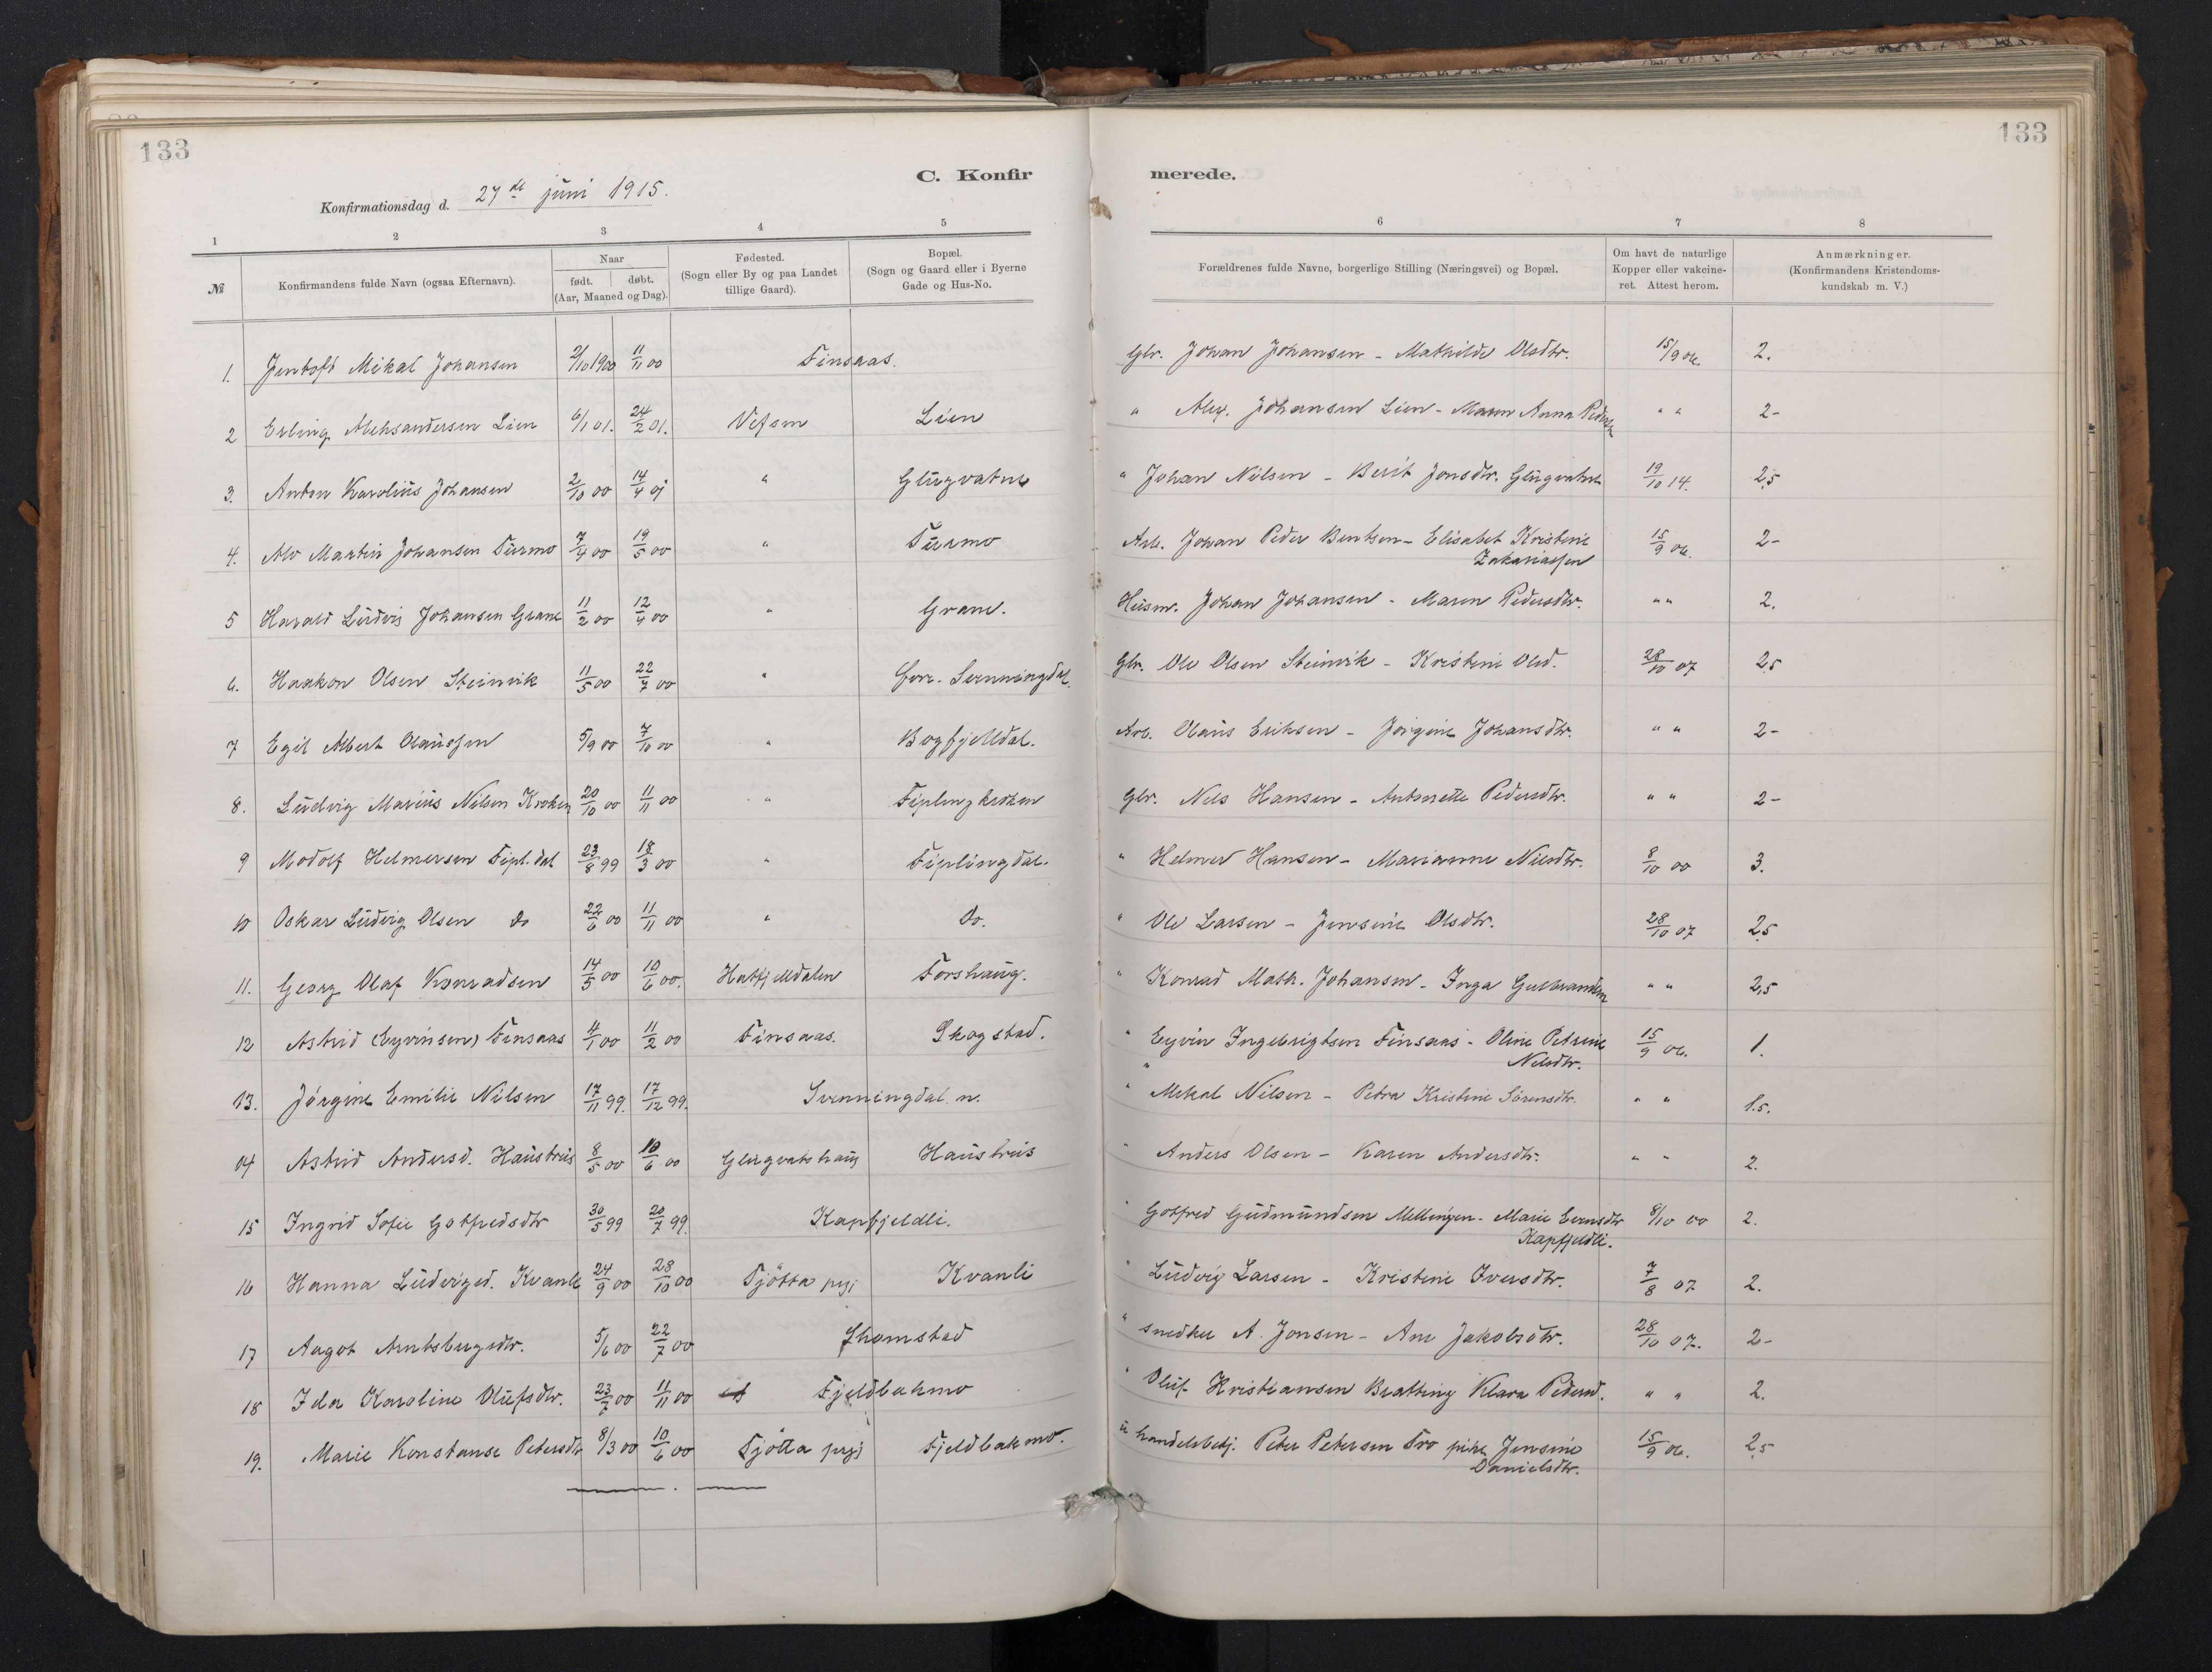 133
133
C. Konfir merede.
Konfirmationsdag d. 27de juni 1915.
1 2 3 4 5 6 7 8
№ Konfirmandens fulde Navn (ogsaa Efternavn). Naar født. døbt. (Aar, Maaned og Dag). Fødested. (Sogn eller By og paa Landet tillige Gaard). Bopæl. (Sogn og Gaard eller i Byerne Gade og Hus-No. Forældrenes fulde Navne, borgerlige Stilling (Næringsvei) og Bopæl. Om havt de naturlige Kopper eller vakcineret. Attest herom. Anmærkninger. (Konfirmandens Kristendomskundskab m. V.)
1. Jentoft Mikal Johansen 2/10 1900 11/11 00 Finsaas. Glr. Johan Johansen - Mathilde Olsdtr. 15/9 06. 2.
2 Erling Aleksandersen Lien 6/1 01. 24/2 01. Vefsen Lien " Alex. Johansen Lien - Maren Anna Pedersdtr " " 2-
3. Anton Karolius Johansen 2/10 00 14/4 01 " Glugvatne " Johan Nilsen - Berit Jonsdtr. Glugvatne 19/10 14. 2,5
4. Alv Martin Johansen Turmo 7/4 00 19/5 00 " Turmo Arb. Johan Peder Bentsen - Elisabet Kristine Zakariassen 15/9 06. 2-
5 Harald Ludvig Johansen Grane 11/2 00 12/4 00 " Grane. Husm. Johan Johansen - Maren Pedersdtr. " " 2.
6. Haakon Olsen Steinvik 11/5 00 22/7 00 " Svenningdal. Glr. Ole Olsen Steinvik - Kristine Olsd. 28/10 07 2,5
7 Egil Albert Olaussen 5/9 00 7/10 00 " Bogfjelldal. Arb. Olaus Eriksen - Jørgine Johansdtr. " " 2-
8. Ludvig Marius Nilsen Kroken 20/10 00 11/11 00 " Fiplingkroken Glr. Nils Hansen - Antonette Pedersdtr. " " 2-
9 Modolf Helmersen Fipl.dal 23/8 99 18/3 00 " Fiplingdal. " Helmer Hansen - Marianne Nilsdtr. 8/10 00 3.
10 Oskar Ludvig Olsen do 22/6 00 11/11 00 " Do. " Ole Larsen - Jensine Olsdtr. 28/10 07 2,5
11. Georg Olaf Konradsen 14/5 00 10/6 00. Hatfjelldalen Forshaug. " Konrad Math. Johansen - Inga Gulbrandsen " " 2,5
12 Astrid (Eyvinsen) Finsaas 4/1 00 11/2 00 Finsaas. Skogstad. " Eyvin Ingebrigtsen Finsaas - Oline Petrine Nilsdtr. 15/9 06. 1.
13. Jørgine Emilie Nilsen 17/11 99. 17/12 99. Svenningdal n. " Mekal Nilsen - Petra Kristine Sørensdtr. " " 1.5.
14 Astrid Andersd. Haustreis 8/5 00 10/6 00 Glugvatshaug Haustreis " Anders Olsen - Karen Andersdtr. " " 2.
15 Ingrid Sofie Gotfredsdtr 30/5 99 20/7 99. Kapfjeldli. " Gotfred Gudmundsen Mellingen - Marie Evensdtr Kapfjeldli. 8/10 00 2.
16 Hanna Ludvigsd. Kvanli 24/9 00 28/10 00 Tjøtta prgj Kvanli " Ludvig Larsen - Kristine Iversdtr. 7/8 07 2.
17 Aagot Arntsbergsdtr. 5/6 00 22/7 00 Thomstad " snedker A. Jonsen - Ane Jakobsdtr. 28/10 07. 2-
18 Ida Karoline Olufsdtr. 00 11/11 00 Fjeldbakmo " Oluf Kristiansen Bratting Klara Pedersd. " " 2.
19. Marie Konstanse Petersdtr 8/3 00 10/6 00 Tjøtta prgj Fjeldbakmo. " handelsbetj. Peter Petersen Tro pike Jensine Danielsdtr. 15/9 06. 2,5